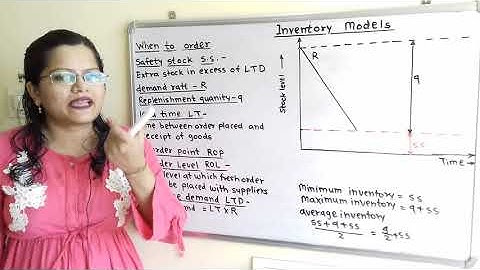 Inventory Models
When to order
Safety stock S.S. -
Extra stock in excess of LTD
demand rate - R
Replenishment quanity - q
lead time LT -
time between order placed and
receipt of goods
order point ROP
order Level ROL -
level at which fresh order
be placed with suppliers
demand LTD -
= LT x R
Stock level
R
q
SS
Time
minimum inventory = SS
maximum inventory = q + SS
average inventory
SS + q + SS / 2 = q/2 + SS